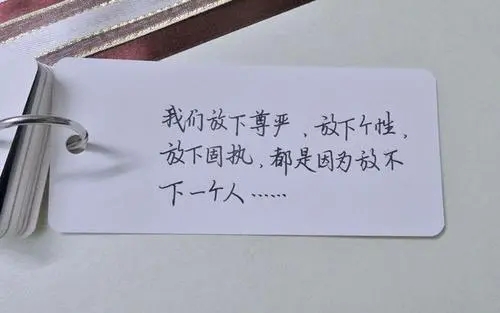 我们放下尊严、放下个性，
放下固执，都是因为放不
下一个人……